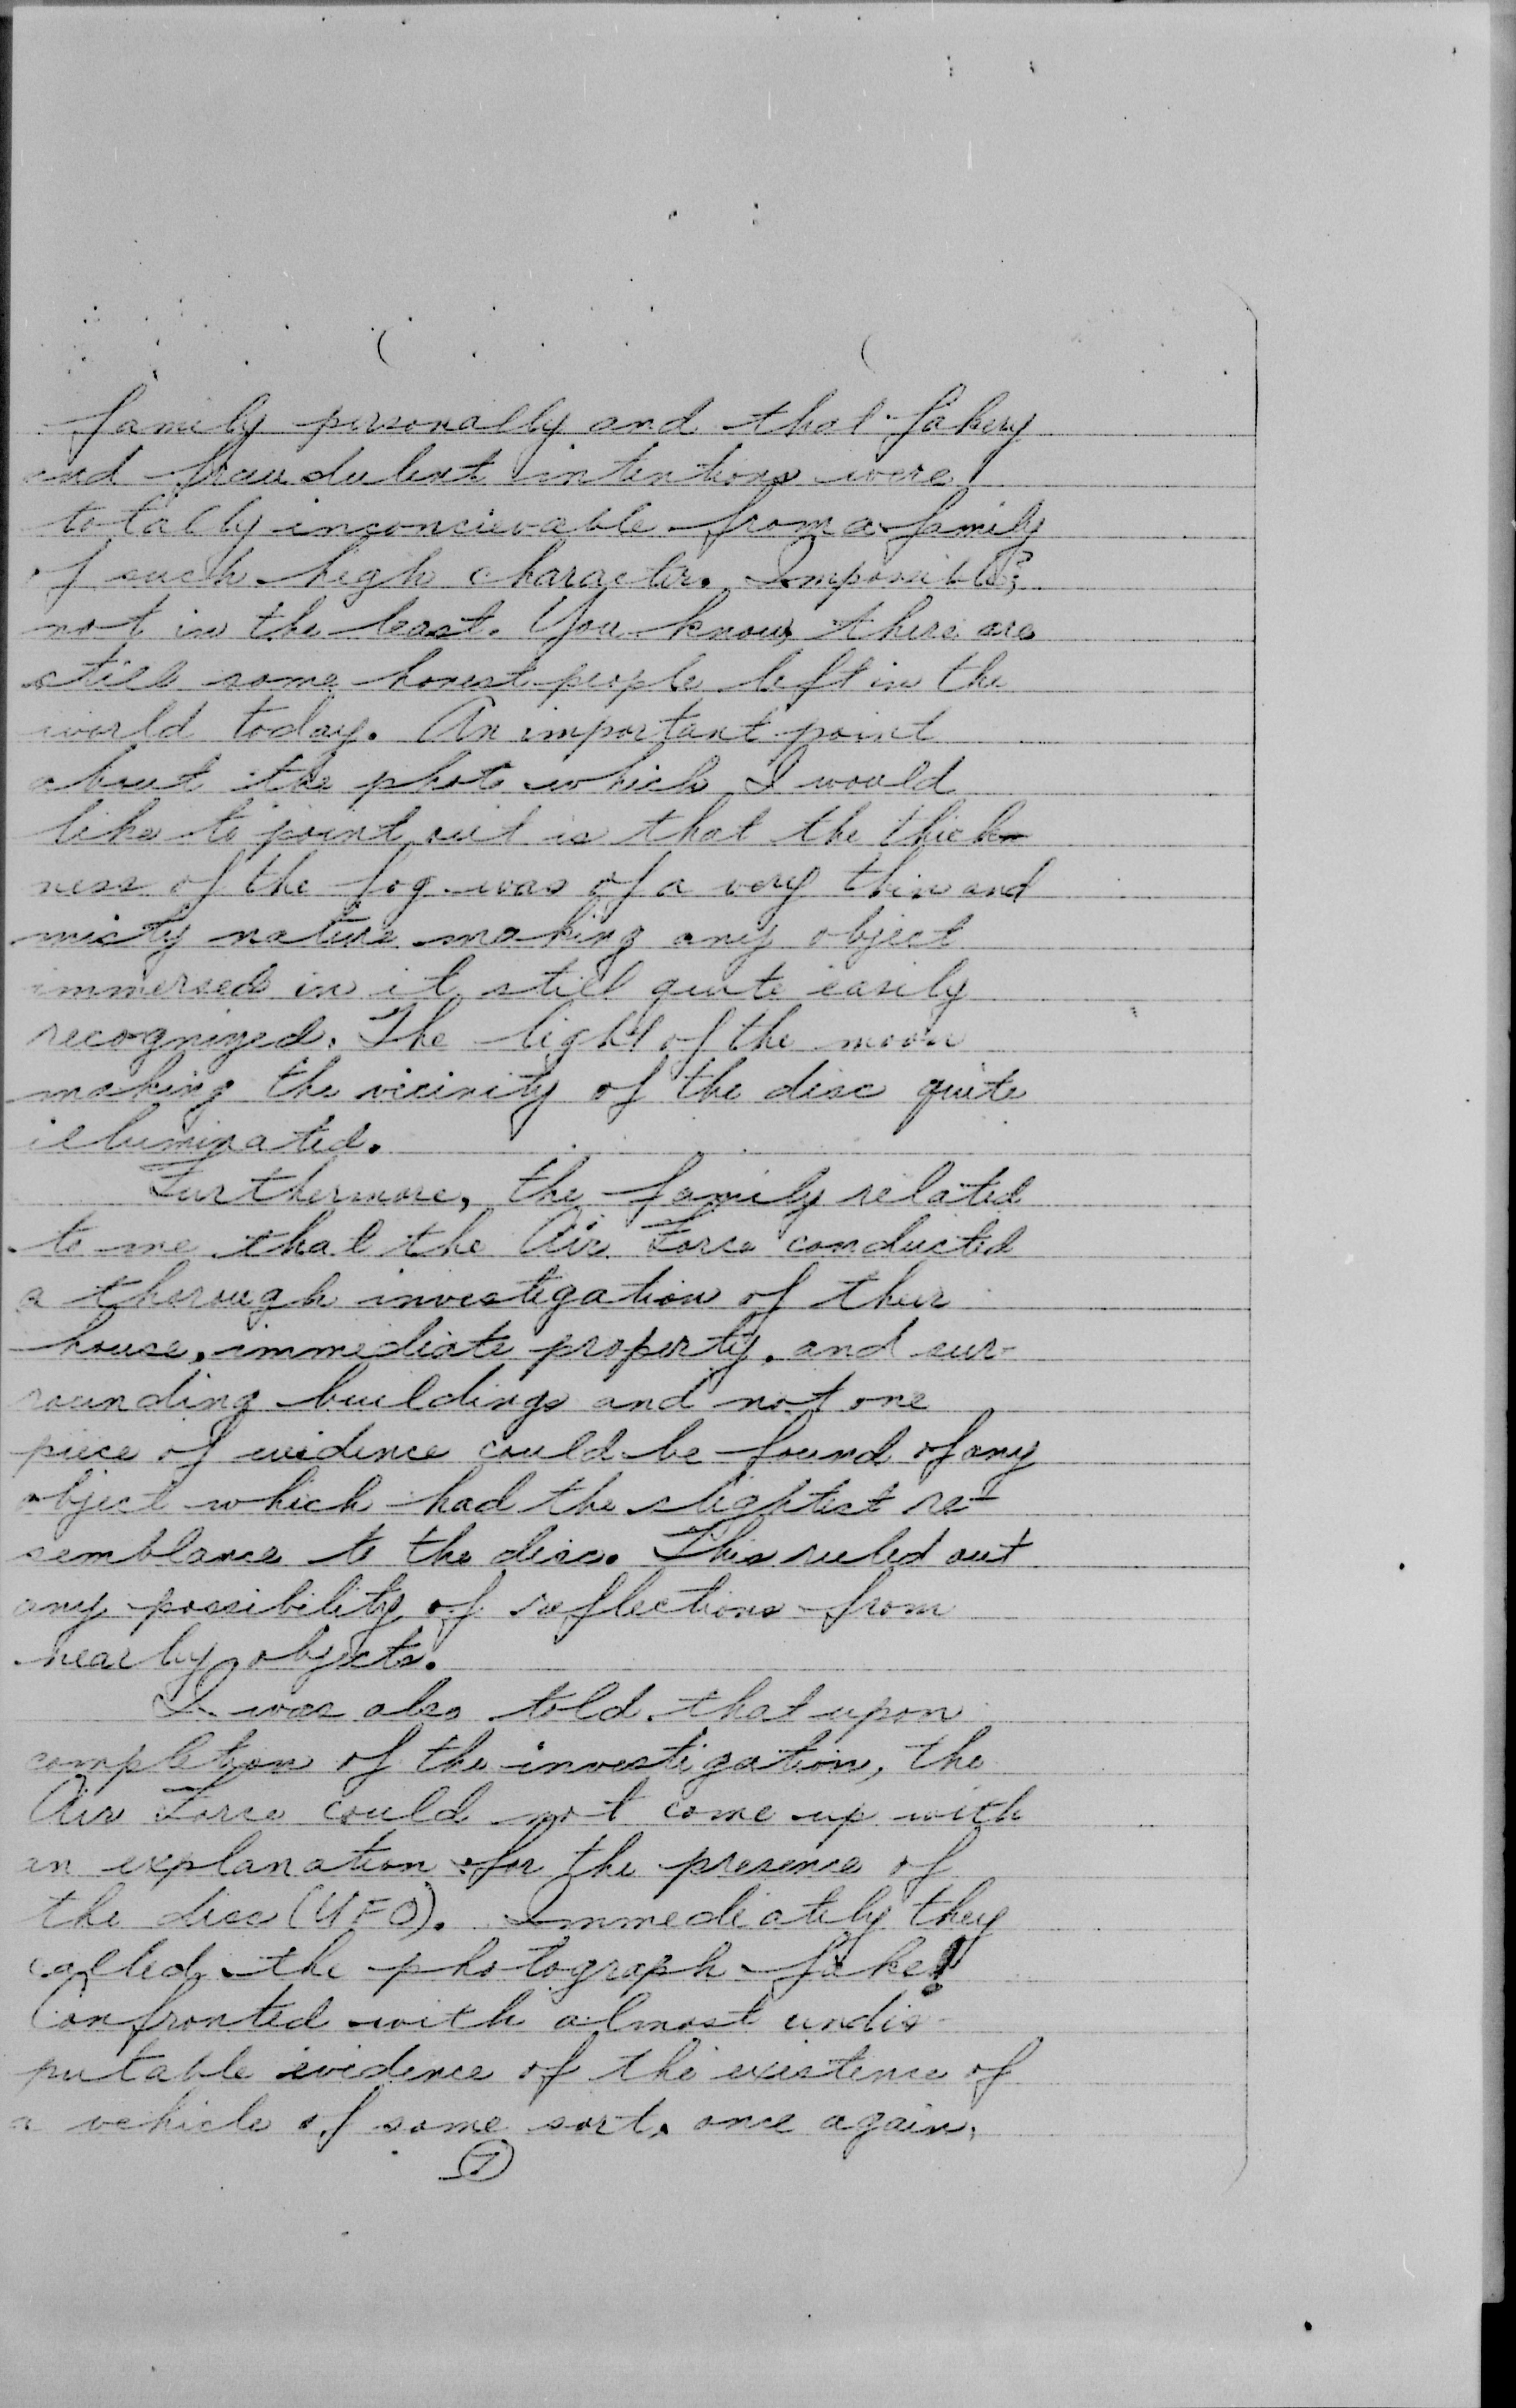 family personally and that fakery
and fraudulent intentions were
totally inconcievable from a family
of such high character. Impossible?,
not in the least. You know, there are
still some honest people left in the
world today. An important point
about the photo which I would
like to point out is that the thick-
ness of the fog was of a very thin and
misty nature making any object
immersed in it still quite easily
recognized. The light of the moon
making the vicinity of the disc quite
illuminated.
Furthermore, the family related
to me that the Air Force conducted
a thorough investigation of their
house, immediate property, and sur-
rounding buildings and not one
piece of evidence could be found of any
object which had the slightest re-
semblance to the disc. This ruled out
any possibility of reflections from
nearby objects.
I was also told that upon
completion of the investigation, the
Air Force could not come up with
an explanation for the presence of
the disc (UFO). Immediately they
called the photograph fake!
Confronted with almost undis-
putable evidence of the existence of
a vehicle of some sort, once again,